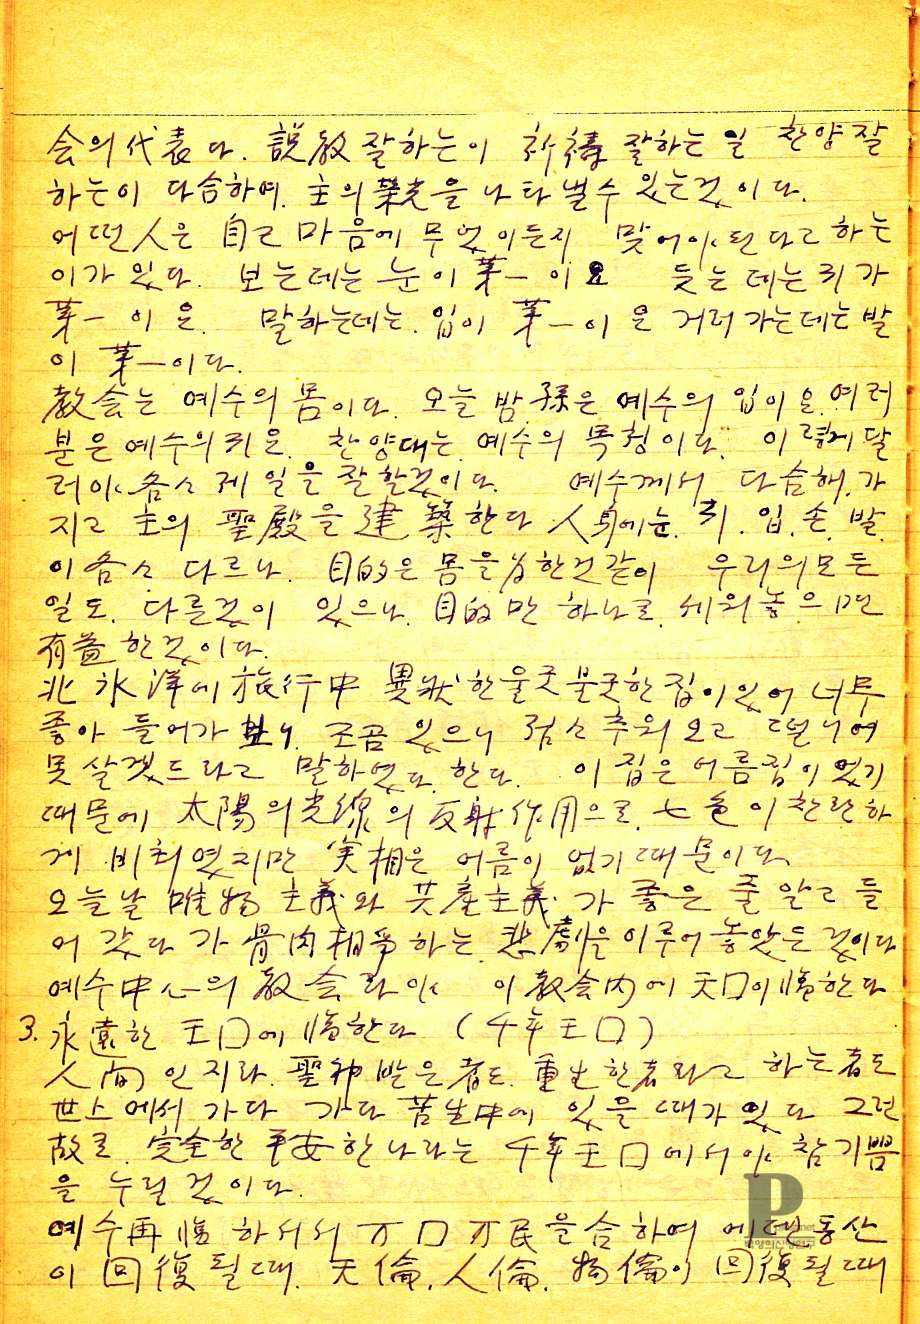 会의 代表다. 説教 잘하는이 祈祷 잘하는 일 찬양 잘
하는이 다合하여. 主의 榮光을 나타낼수 있는것이다.
어떤人은 自己 마음에 무엇이든지 맞어야 된다고 하는
이가 있다. 보는데는 눈이 第一이요 듣는데는 귀가
第一이요. 말하는데는. 입이 第一이요 거러가는데는 발
이 第一이다.
敎會는 예수의 몸이다. 오늘밤 孫은 예수의 입이요. 여러
분은 예수의 귀요. 찬양대는 예수의 목청이다. 이렇게 달
러야 各々 제일을 잘할것이다. 예수께서 다 合해.가
지고 主의 聖殿을 建築한다 人身에눈. 귀. 입. 손. 발.
이 各々 다르나. 目的은 몸을 为한것같이 우리의 모든
일도. 다를것이 있으나. 目的만 하나로 세워놓으면
有益한것이다.
北氷洋에 旅行中 異狀한 울긋불긋한 집이있어 너무
좋아 들어가 보니. 조금 있으니 점々 추워오고 떨니여
못살겠드라고 말하였다 한다. 이집은 어름집이였기
때문에 太陽의 光線의 反射作用으로. 七色이 찬란하
게 비최였지만 実相은 어름이 였기 때문이다.
오늘날 唯物主義와 共產主義가 좋은줄 알고 들
어 갔다가 骨肉相爭하는. 悲劇을 이루어 놓았든것이다
예수中心의 敎会라야 이 敎会內에 天口이 臨한다
3. 永遠한 王口에 臨한다 (千年王口)
人間인지라. 聖神받은者도. 重生한者라고 하는者도
世上에서 가다 가다 苦生中에 있을때가 있다 그런
故로. 完全한 平安한나라는 千年王口에서야 참기쁨
을 누릴것이다.
예수再臨하서서 万口万民을 合하여 에덴동산
이 回復될때. 天倫. 人倫. 物倫이 回復될때